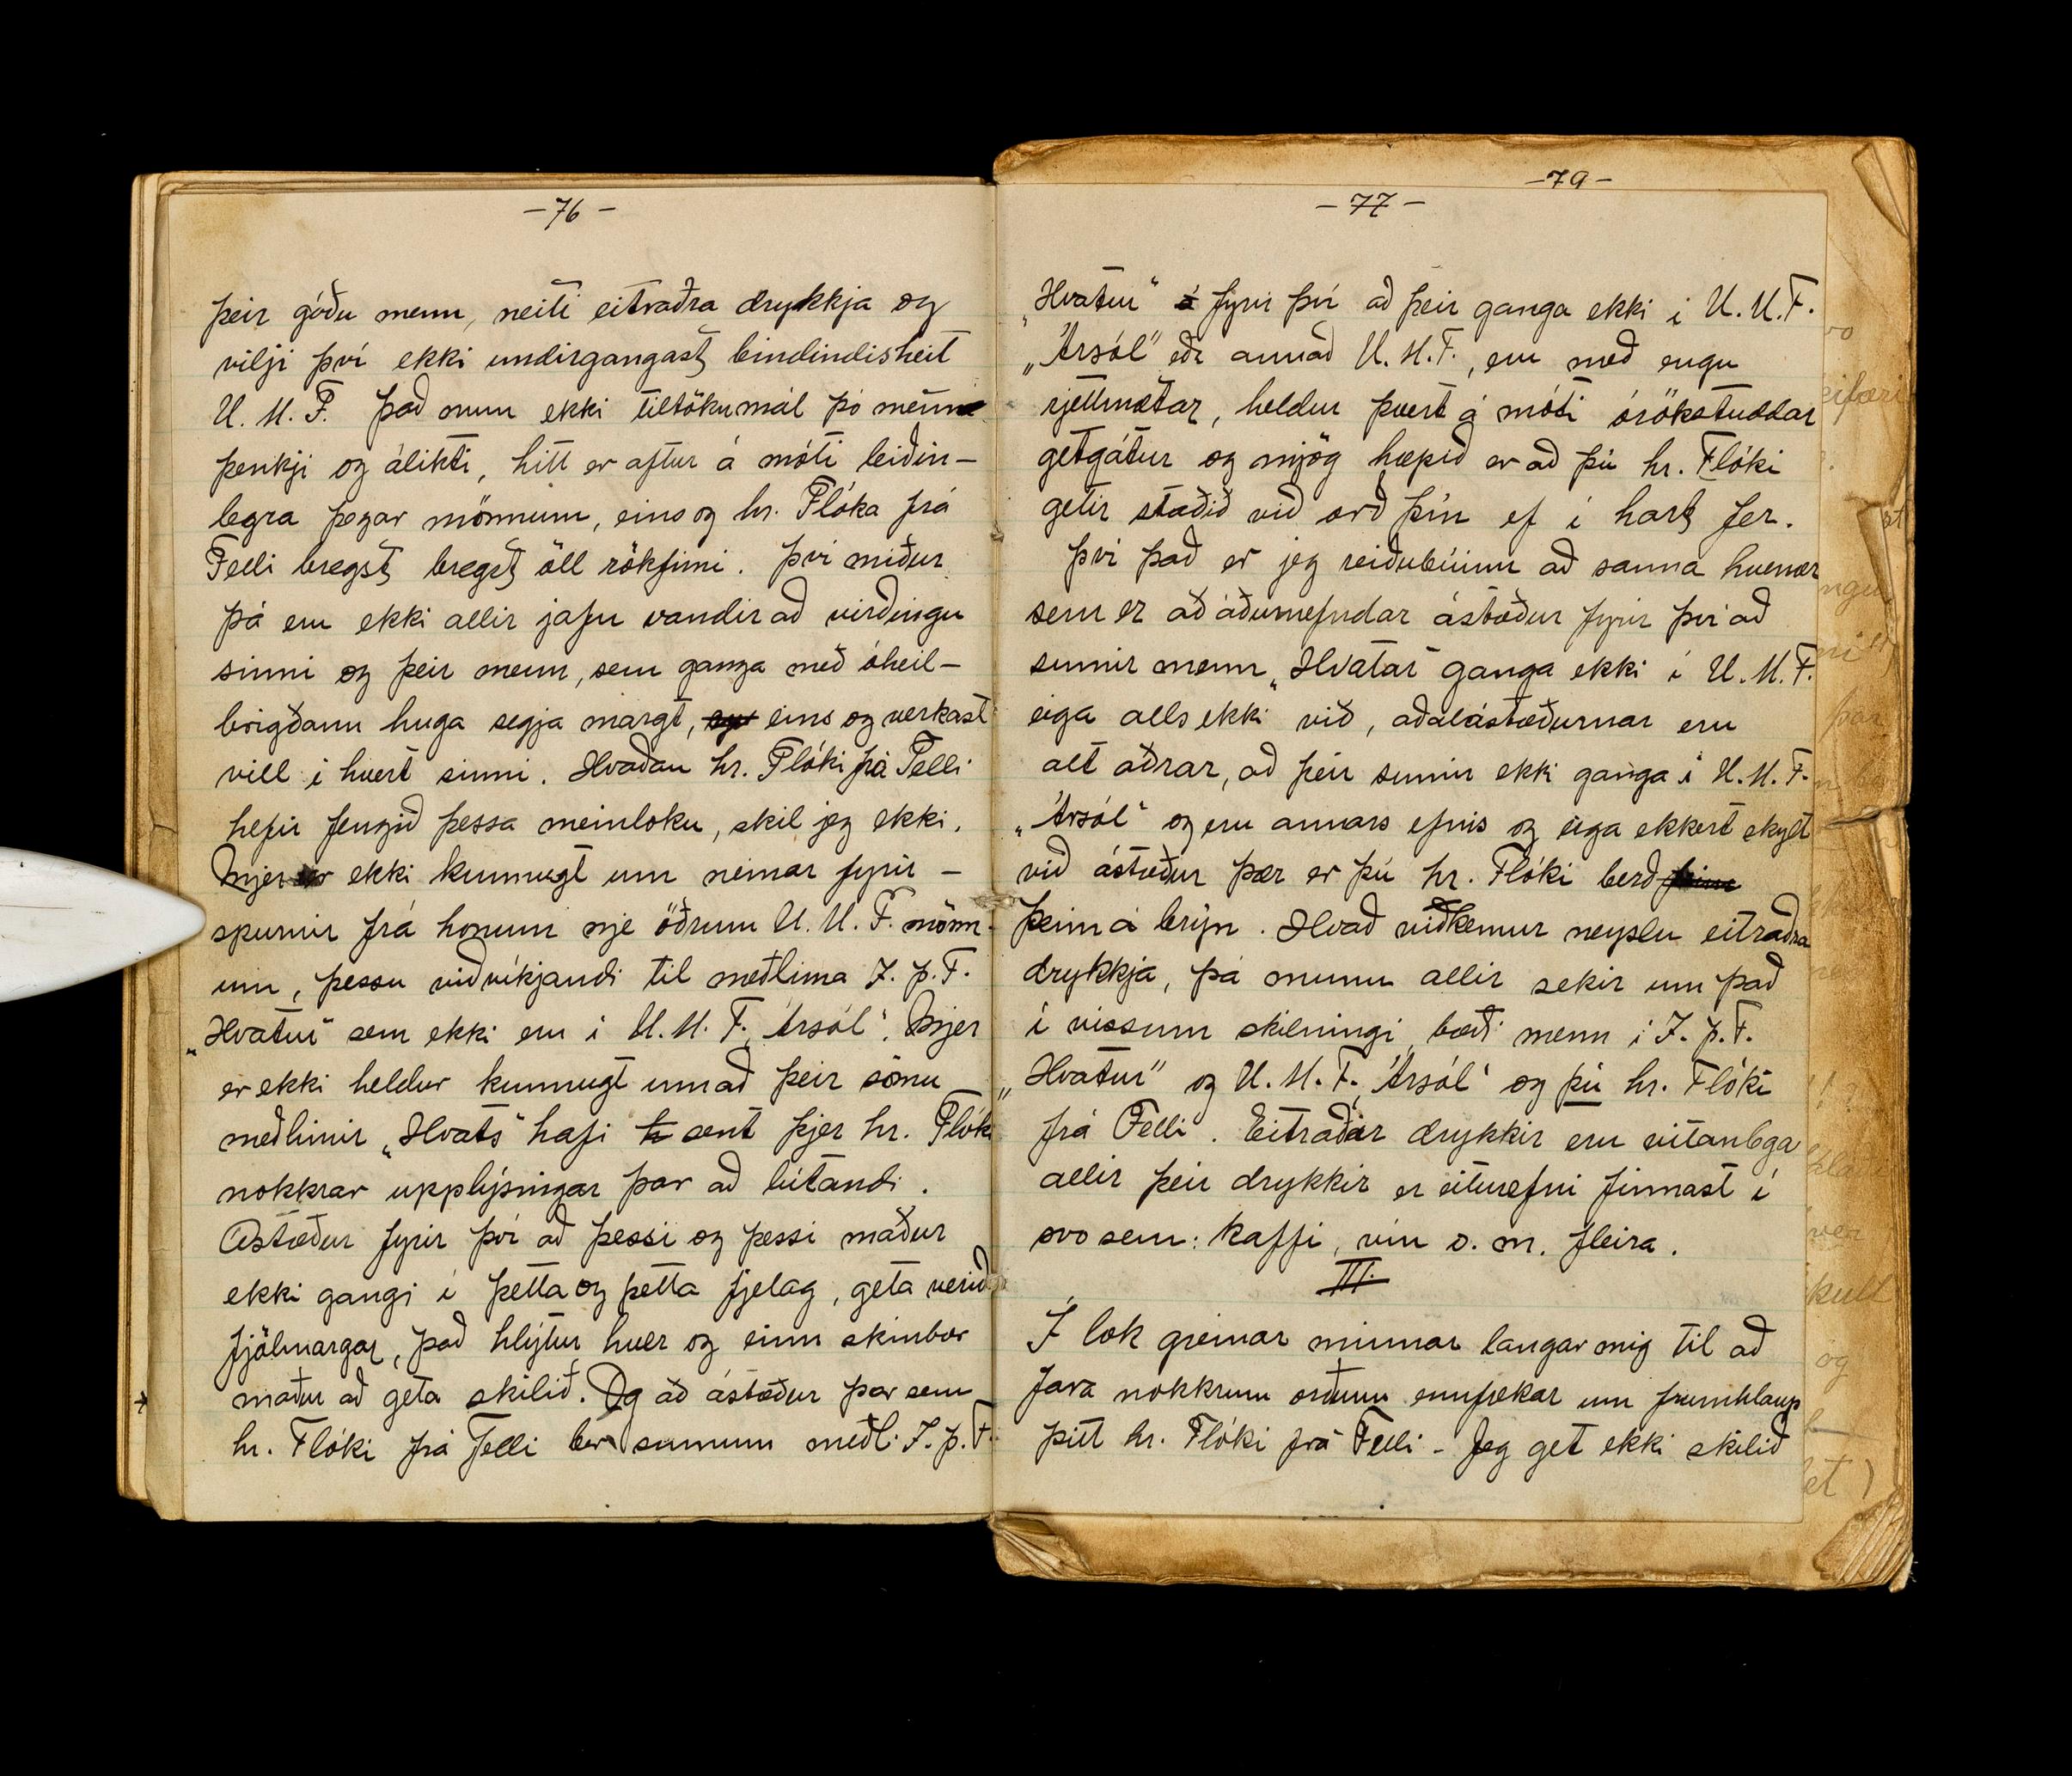 -76-
þeir góðu menn, neiti eitraðra drykkja og
vilji því ekki undirgangast bindindisheit
U. M. F. Það mun ekki tiltökumál þó menn
þenkji og álikti, hitt er aftur á móti leiðin-
legra þegar mönnum, eins og hr. Flóka frá
Felli bregst bregst öll rökfimi. Því miður
þá eru ekki allir jafn vandir að virðingu
sinni og þeir menn, sem ganga með óheil-
brigðann huga segja margt, eins og verkast
vill í hvert sinni. Hvaðan hr. Flóki frá Felli
hefir fengið þessa meinloku, skil jeg ekki.
Mjer er ekki kunnugt um neinar fyrir-
spurnir frá honum nje öðrum U. M. F. mönn-
um, þessu viðvíkjandi til meðlima Í. þ. F.
„Hvatur" sem ekki eru í U. M. F. Ársól". Mjer
er ekki heldur kunnugt um að þeir sömu
meðlimir „Hvats" hafi sent þjer hr. Flóki
nokkrar upplýsingar þar að lútandi.
Ástæður fyrir því að þessi og þessi maður
ekki gangi í þetta og þetta fjelag, geta verið
fjölmargar, það hlýtur hver og einn skinbær
maður að geta skilið. Og að ástæður þær sem
hr. Flóki frá Felli ber sumum meðl. Í. þ. F.
-79-
-77-
„Hvatur" fyrir því að þeir ganga ekki í U. M. F.
„Ársól" eða annað U. M. F., eru með engu
rjettmætar, heldur þvert á móti órökstuddar
getgátur og mjög hæpið er að þú hr. Flóki
getir staðið við orð þín ef í hart fer.
Því það er jeg reiðubúinn að sanna hvenær
sem er að áðurnefndar ástæður fyrir því að
sumir menn „Hvatar" ganga ekki í U. M. F.
eiga alls ekki við, aðalástæðurnar eru
alt aðrar, að þeir sumir ekki ganga í U. M. F.
„Ársól" og eru annars efnis og eiga ekkert skylt
við ástæður þær er þú hr. Flóki berð
þeim á brýn. Hvað viðkemur neyslu eitraðra
drykkja, þá munu allir sekir um það
í vissum skilningi bæði menn í Í. þ. F.
„Hvatur" og U. M. F. „Ársól" og þú hr. Flóki
frá Felli. Eitraðir drykkir eru vitanlega
allir þeir drykkir er eiturefni finnast í
svo sem: kaffi, vín o. m. fleira.
III.
Í lok greinar minnar langar mig til að
fara nokkrum orðum ennfrekar um frumhlaup
þitt hr. Flóki frá Felli - Jeg get ekki skilið